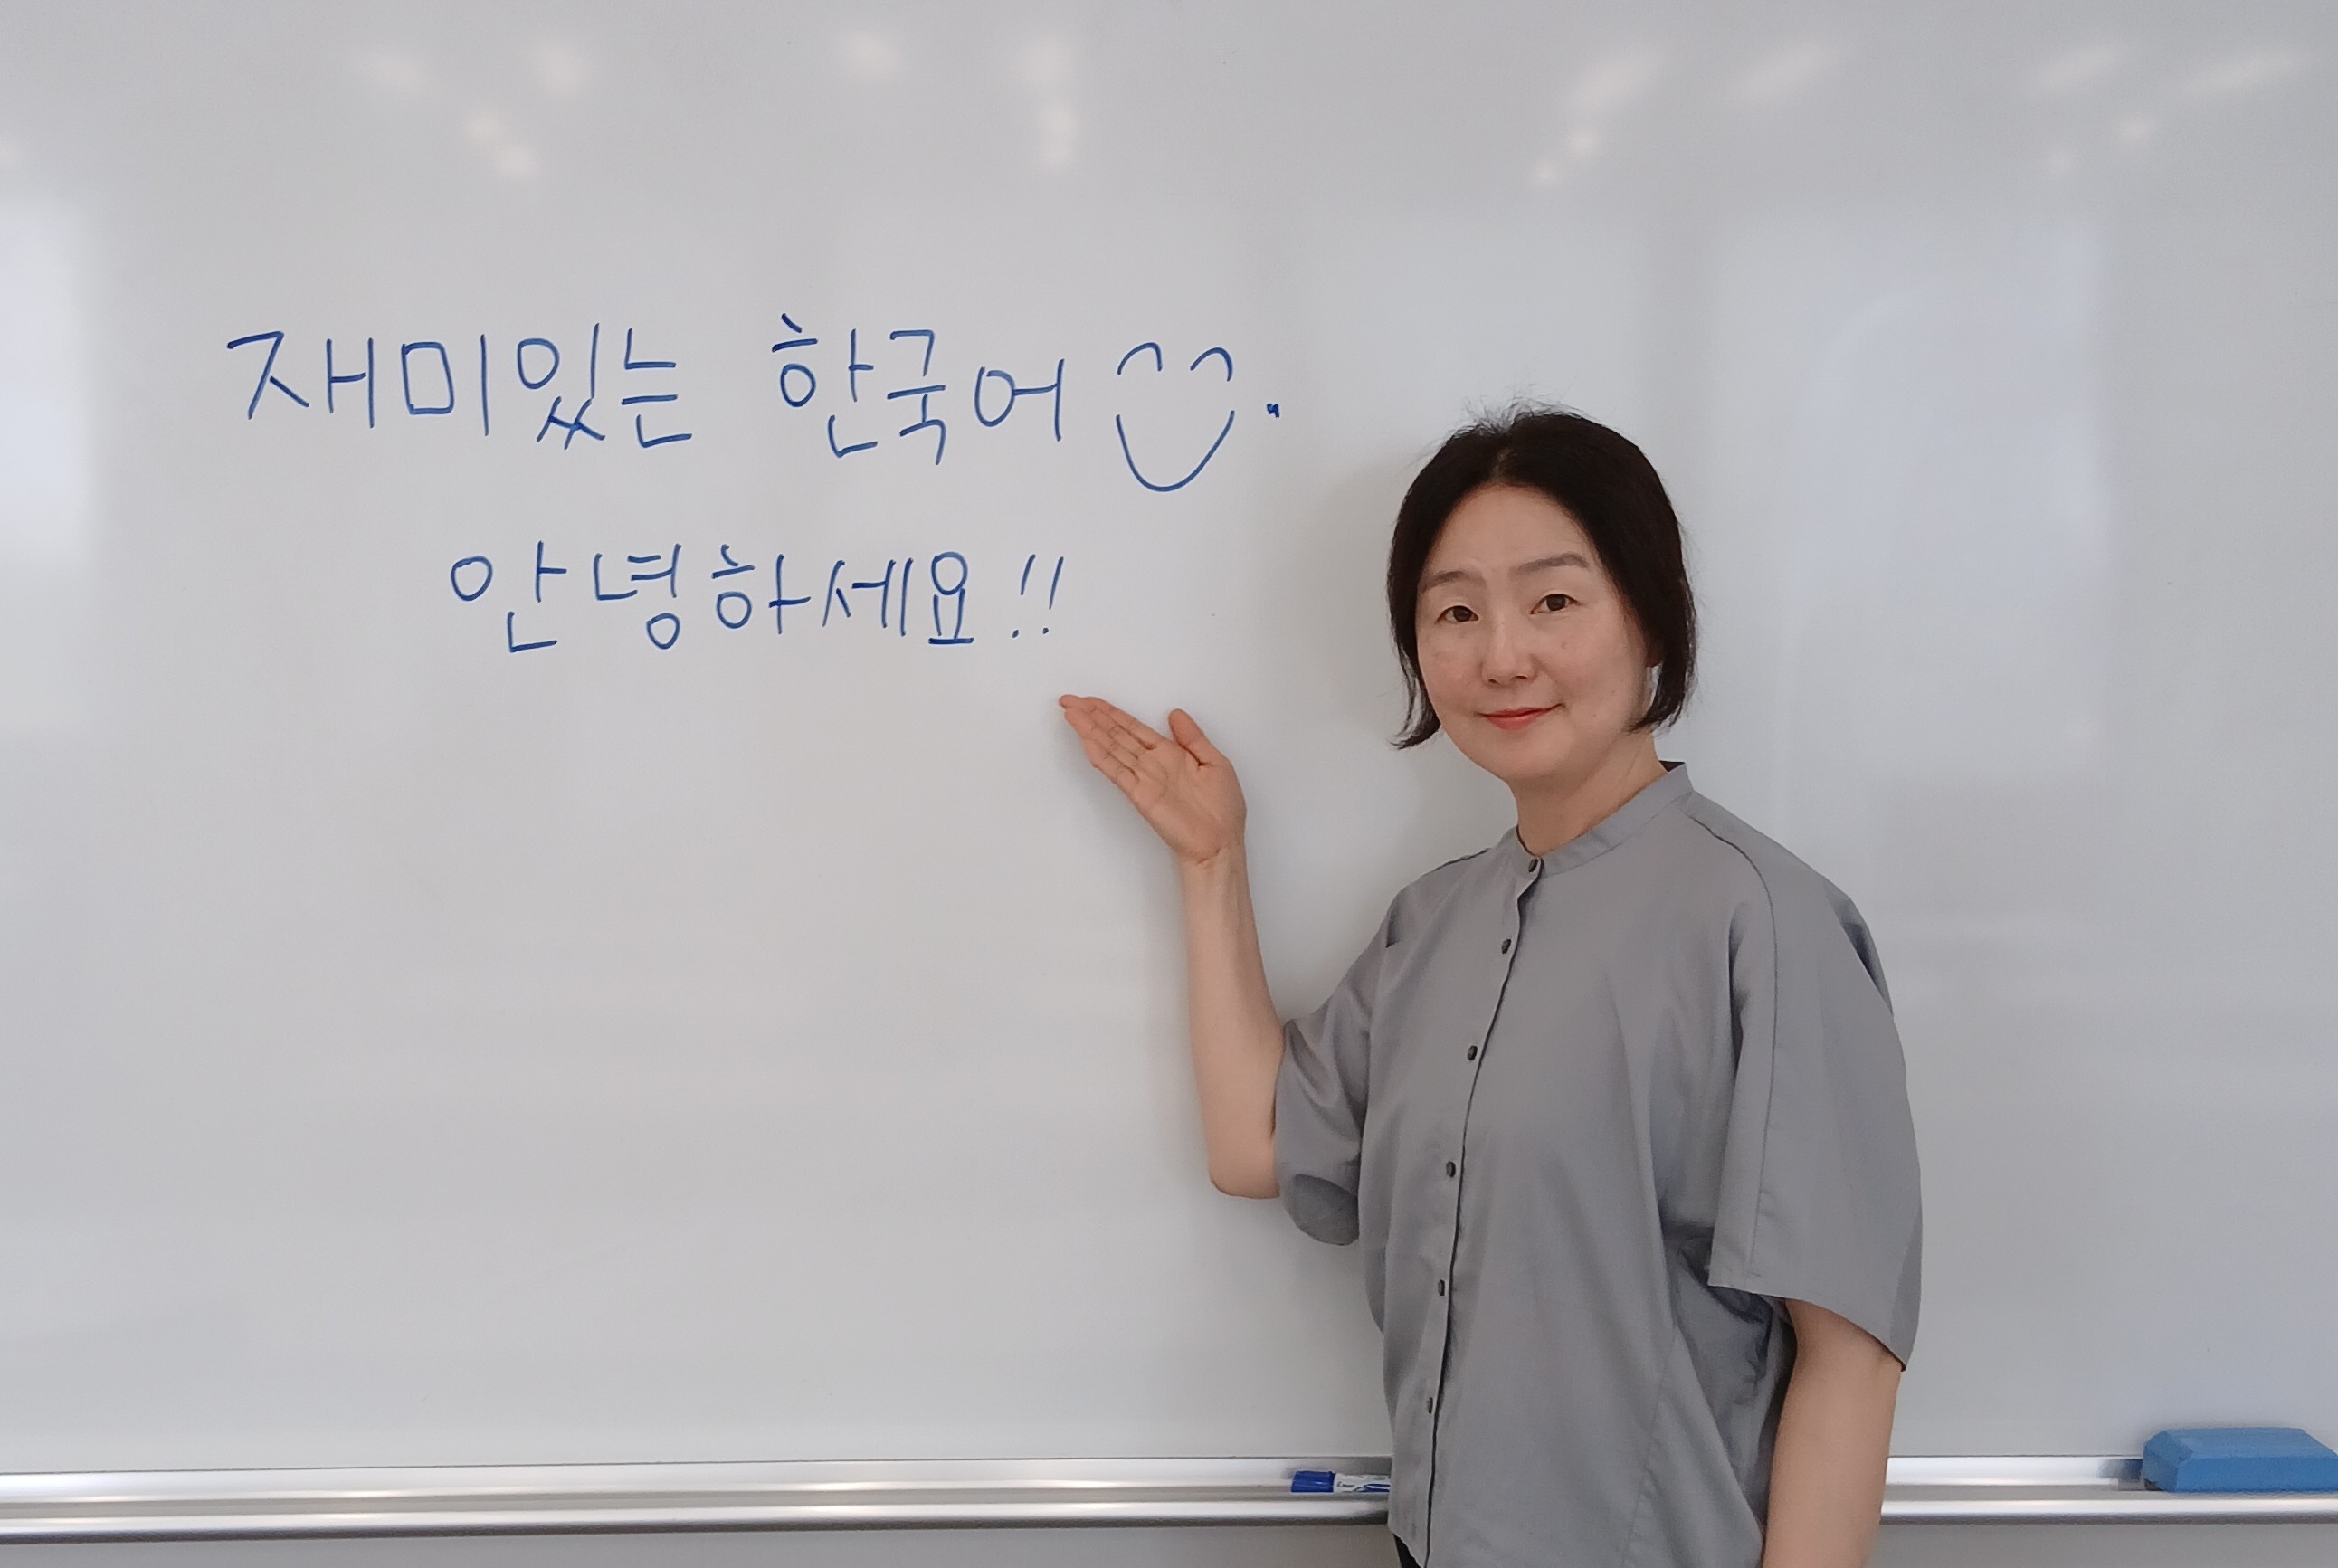 재미있는 한국어
안녕하세요!!